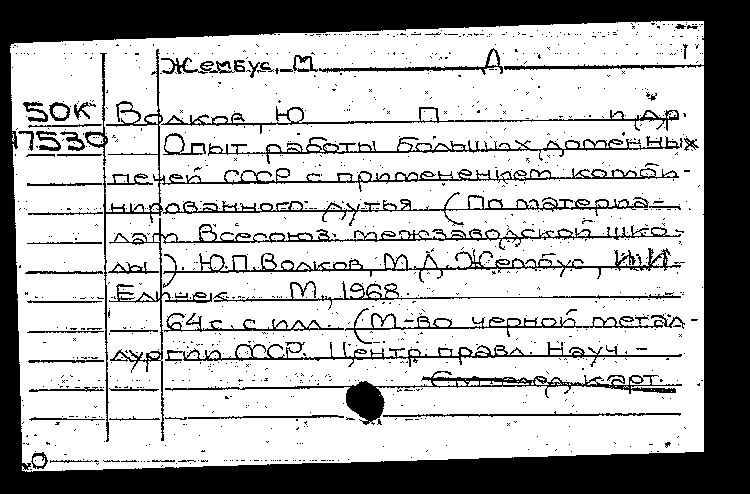 Жембус, М Д
50К Волков, Ю П и др.
17530 Опыт работы больших доменных
печей СССР с применением комби-
нированного дутья. (По материа-
лам Всесоюз. межзаводской шко-
лы). Ю.П. Волков, М.Д. Жембус, И.И.
Елинек М., 1968.
64 с. с илл. (М-во черной метал-
лургии СССР. Центр. правл. Науч.-
См. след. карт.